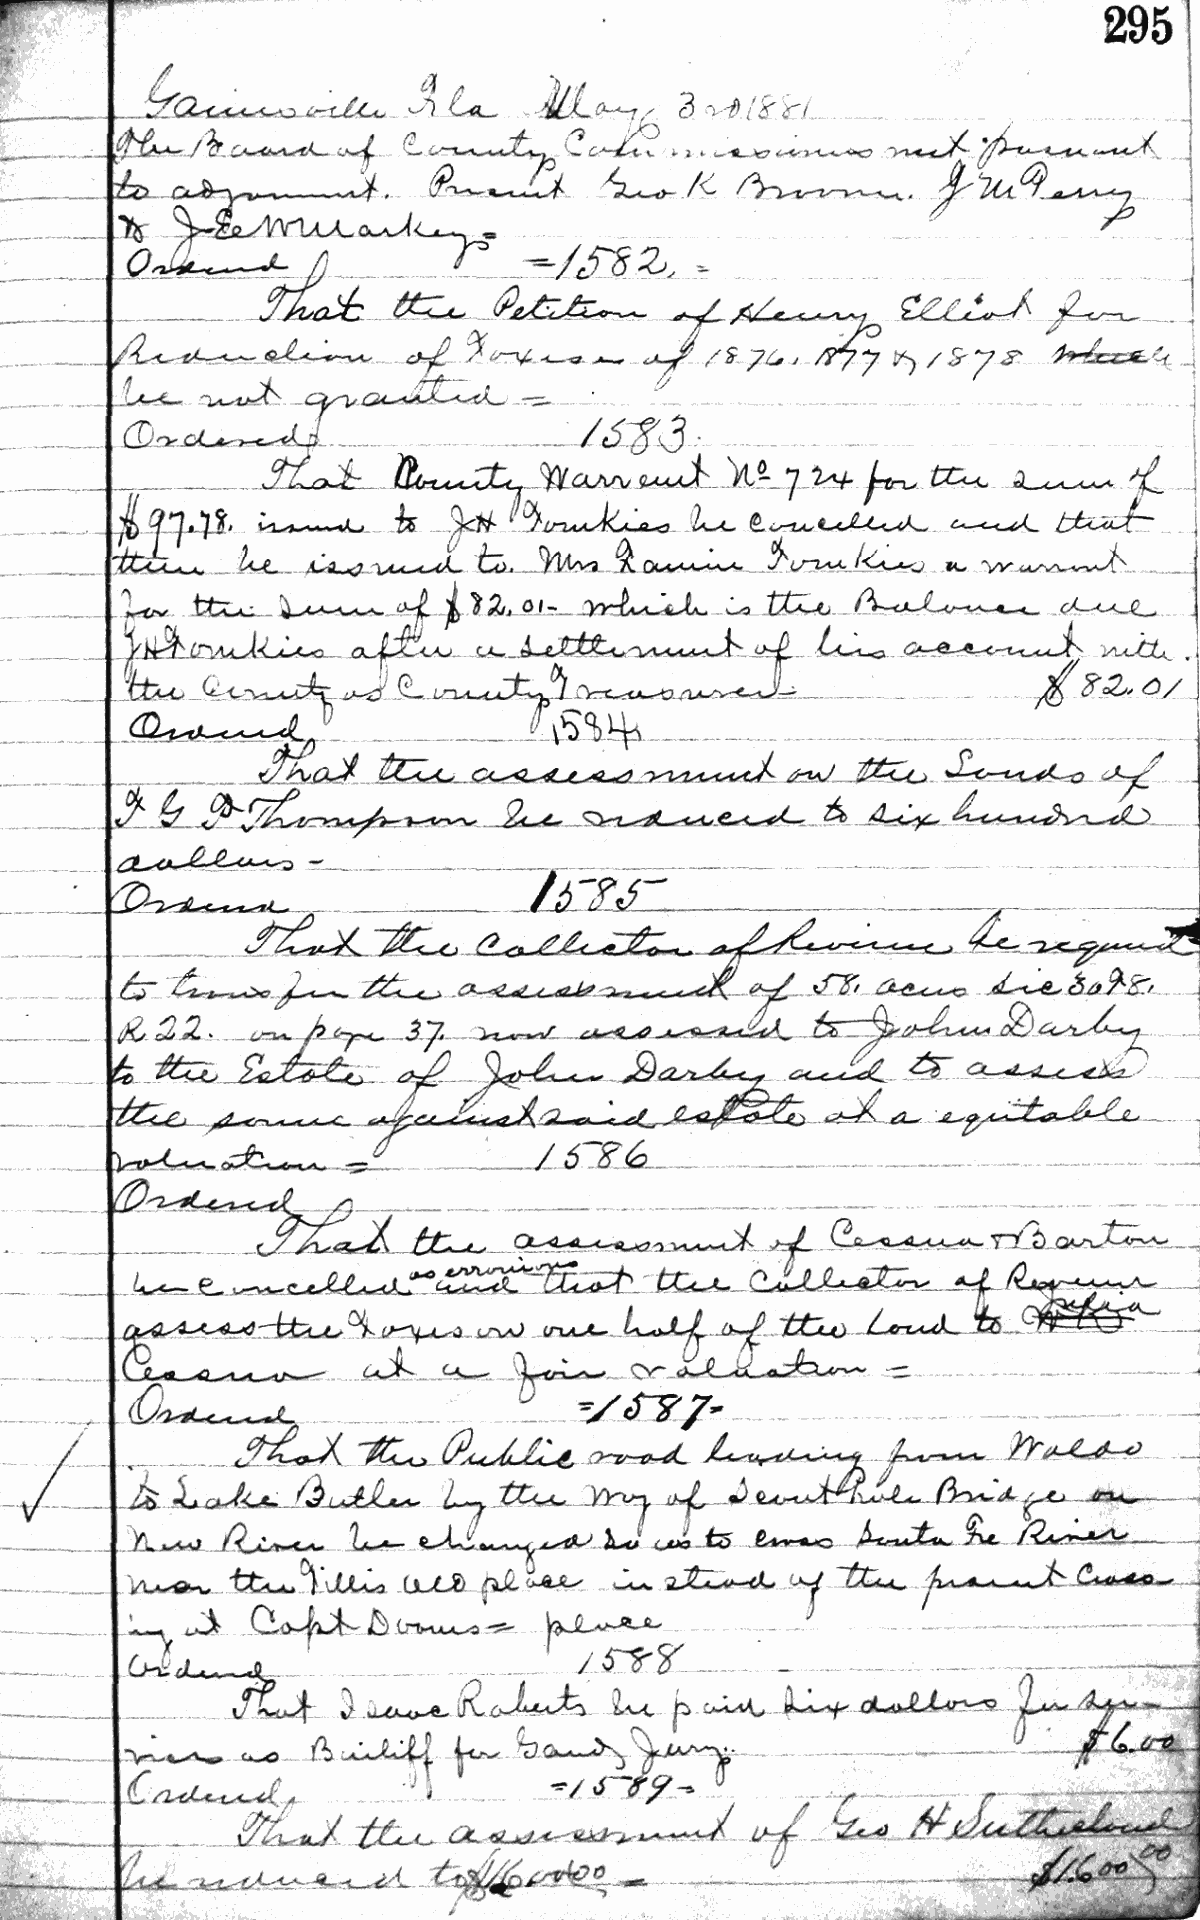 295
Gainesville Fla May 3rd 1881
The Board of County Commissioners met pursuant
to adjornment. Present Geo K Broome. J M Perry
& J E W Markey=
Ordered =1582.=
That the Petition of Henry Elliot for
Reduction of Taxes of 1876. 1877 & 1878
be not granted =
Ordered 1583.
That County Warrent No 724 for the sum of
$97.78. issued to J H Tomkies be cancelled and that
there be issued to. Mrs Fannie Tomkies a warrent
for the sum of $82.01- which is the Balance due
J H Tomkies after a settlement of his account with
the County as County Treasurer $82.01
Ordered 1584
That the assessment on the Lands of
F G P Thompson be reduced to six hundred
dollars -
Ordered 1585
That the Collector of Revenue be required
to transfer the assessment of 58. acres Sec 30 T 8.
R 22. on page 37. now assessed to John Darby
to the Estate of John Darby and to assess
the same against said estate at a equitable
valuation = 1586
Ordered
That the assessment of Cessna & Barton
be cancelled as erronious and that the Collector of Revenue
assess the Taxes on one half of the Land to
Cessna at a fair valuation =
Ordered =1587=
That the Public road leading from Waldo
to Lake Butler by the way of Bridge on
New River be changed so as to cross Santa Fe River
near the Tillis old place instead of the present Cross
ing at Capt Dooms= place
Ordered 1588
That Isaac Roberts be paid six dollars for ser-
vices as Bailiff for Grand Jury. $6.00
Ordered =1589=
That the assessment of Geo H Sutherland
be reduced to $1600.00 = $1600.00